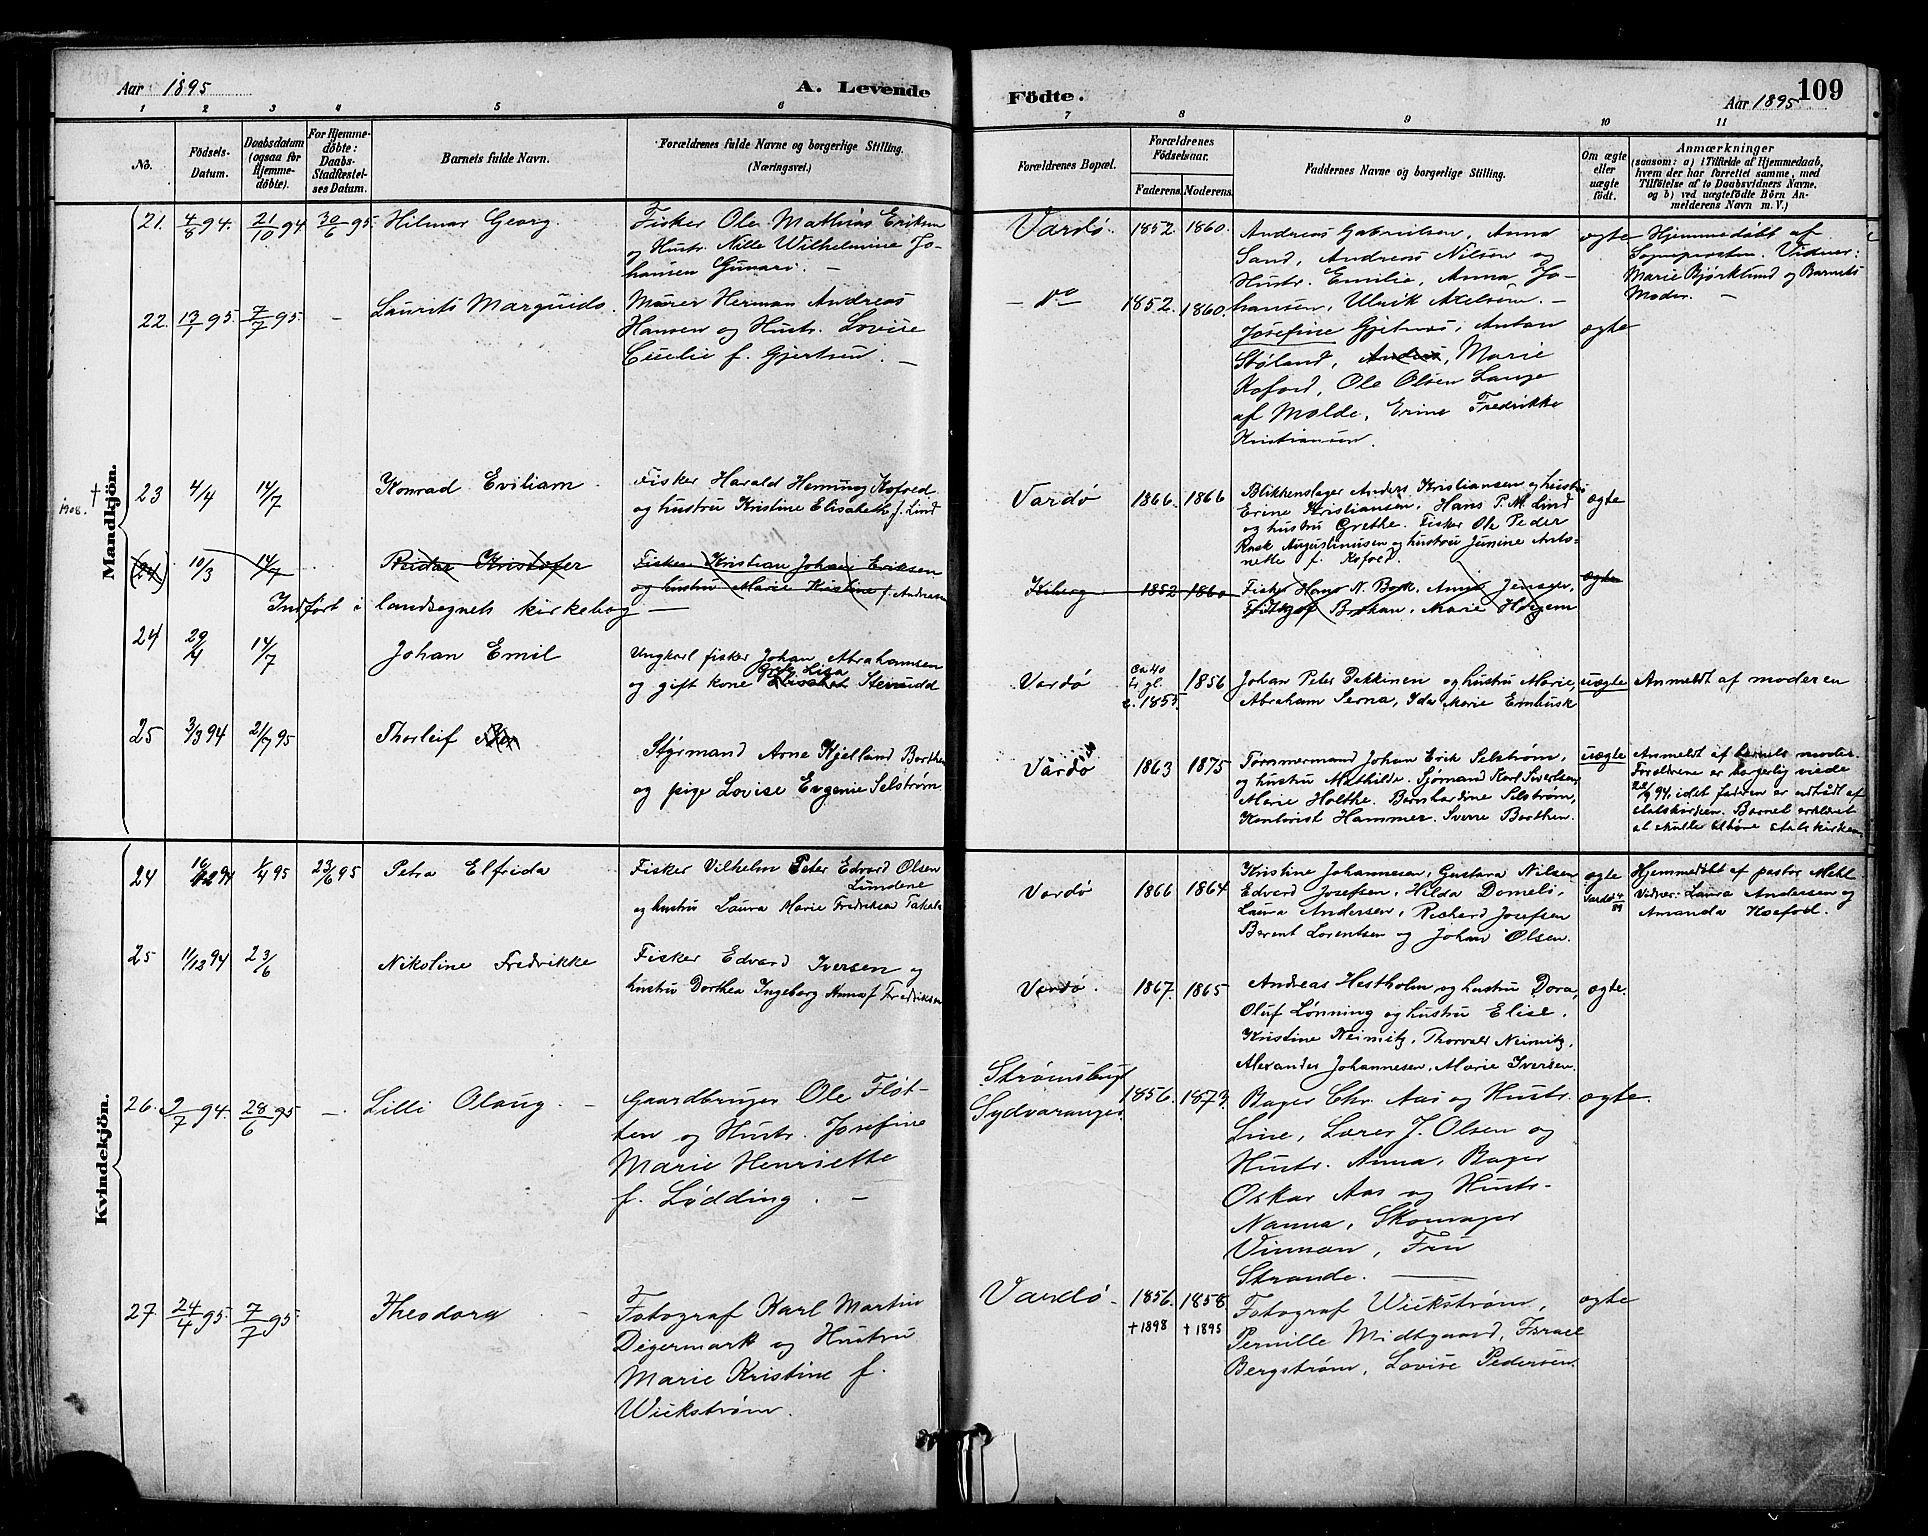 Aar 1895
A. Levende
Födte.
Aar 1895
109
1 2 3 4 5 6 7 8 9 10 11
No.
Födsels-
Datum.
Daabsdatum
(ogsaa for
Hjemme-
döbte).
For Hjemme-
döbte:
Daabs-
Stadfæstel-
ses Datum.
Barnets fulde Navn.
Forældrenes fulde Navne og borgerlige Stilling.
(Næringsvei.)
Forældrenes Bopæl.
Forældrenes
Födselsaar.
Faderens.
Moderens.
Faddernes Navne og borgerlige Stilling.
Om ægte
eller
uægte
födt.
Anmærkninger
(saasom: a) i Tilfælde af Hjemmedaab,
hvem der har forrettet samme, med
Tilföielse af to Daabsvidners Navne,
og b) ved uægtefödte Börn An-
melderens Navn m. V.)
Mandkjön.
21. 4/8 94. 21/10 94 30/6 95. Hilmar Georg.
Fisker Ole Mathias Eriksen
og Hustr. Nille Wilhelmine Jo-
hansen Gunari. —
Vardø. 1852. 1860.
Andreas Gabrielsen, Anna
Sand, Andreas Nilsen og
Hustr. Emilie, Anna Jo-
hansen, Ulrik Axelsen. —
ægte
Hjemmedøbt af
Sogneprosten. Vidner:
Marie Bjørklund og Barnets
Moder. —
22. 13/1 95. 7/7 95. — Laurits Marguids.
Murer Herman Andreas
Hansen og Hustr. Lovise
Cecilie f. Gjertsen. —
— Do 1852. 1860.
Josefine Gjetnes, Anton
Støland, Andrea, Marie
Kofoed, Ole Olsen Lange
af Molde, Erine Fredrikke
Kristiansen.
ægte
1908. †
23 4/4 14/7 Konrad Eviliam
Fisker Harald Henning Kofoed
og hustru Kristine Elisabeth f. Lind
Vardø 1866 1866
Blikkenslager Anders Kristiansen og hustru
Erine Kristiansen, Hans P. M. Lind
og hustru Grethe. Fisker Ole Peder
Rask Augustinusen og hustru Junine Anto-
nette f. Kofoed.
ægte
(24) 10/3 14/7 Reidar Kristofer
Fisker Kristian Johan Eriksen
og hustru Marie Kristine f. Andreassen
Indført i landsognets kirkebog —
Kiberg 1852 1860
Fisker Hans N. Bock. Anna Jensen,
Fridtjof Brekan, Marie Hagem
ægte
24 29/4 14/7 Johan Emil
Ungkarl fisker Johan Abrahamsen
og gift kone Elisabet Greta Lisa Stenudd
Vardø ca 40 år gl. c. 1855 1856
Johan Peter Pekkinen og hustru Marie,
Abraham Serna, Ida Marie Ernhusk
uægte
Anmeldt af moderen
25 3/3 94 21/7 95 Thorleif
Styrmand Arne Kjelland Borthen
og pige Lovise Evgenie Selstrøm
Vardø 1863 1875
Tømmermand Johan Erik Selstrøm,
og hustru Mathilde. Sjømand Karl Sivertsen,
Marie Holthe. Bernhardine Selstrøm,
Kontorist Hammer. Sverre Borthen.
uægte
Anmeldt af barnets moder.
Forældrene er borgerlig viede
22/9 94, idet faderen er udtrådt af
statskirken. Barnet erklæret
at skulle tilhøre statskirken
Kvindekjön.
24 16/12 94 1/4 95 23/6 95 Petra Elfrida
Fisker Vilhelm Peter Edvard Olsen
Lundene
og hustru Laura Marie Fredriksen Takala
Vardø 1866 1864
Kristine Johannesen, Gustava Nilsen
Edvard Josefsen, Hilda Domelö,
Laura Andersen, Richard Josefsen
Berent Lorentsen og Johan Olsen.
ægte
Hjemmedøbt af pastor Mehl.
Vidner: Laura Andersen og
Amanda Koefod.
25 11/12 94 23/6 Nikoline Fredrikke
Fisker Edvard Iversen og
hustru Dorthea Ingeborg Anna f. Fredriksen
Vardø. 1867. 1865
Andreas Hestholm og hustru Dora,
Oluf Lønning og hustru Elise.
Kristine Neimitz, Thorvald Neimitz,
Alexander Johannesen, Marie Iversen.
ægte.
26. 9/7 94. 28/6 95 — Lilli Olaug. —
Gaardbruger Ole Fløt-
ten og Hustr. Josefine
Marie Henriette
f. Lødding. —
Strømsbugt
Sydvaranger. 1856. 1873.
Bager Chr. Aas og Hustr.
Line, Lærer J. Olsen og
Hustr. Anna, Bager
Oskar Aas og Hustr.
Nanna, Skomager
Vinnan, Fru
Strande. —
ægte.
27. 24/4 95. 7/7 95. Theodora —
Fotograf Karl Martin
Digermark og Hustru
Marie Kristine f.
Wickstrøm.
Vardø. 1856. † 1898 1858 † 1895
Fotograf Wickstrøm,
Pernille Midtgaard, Israel
Bergstrøm, Lovise Pedersen.
ægte